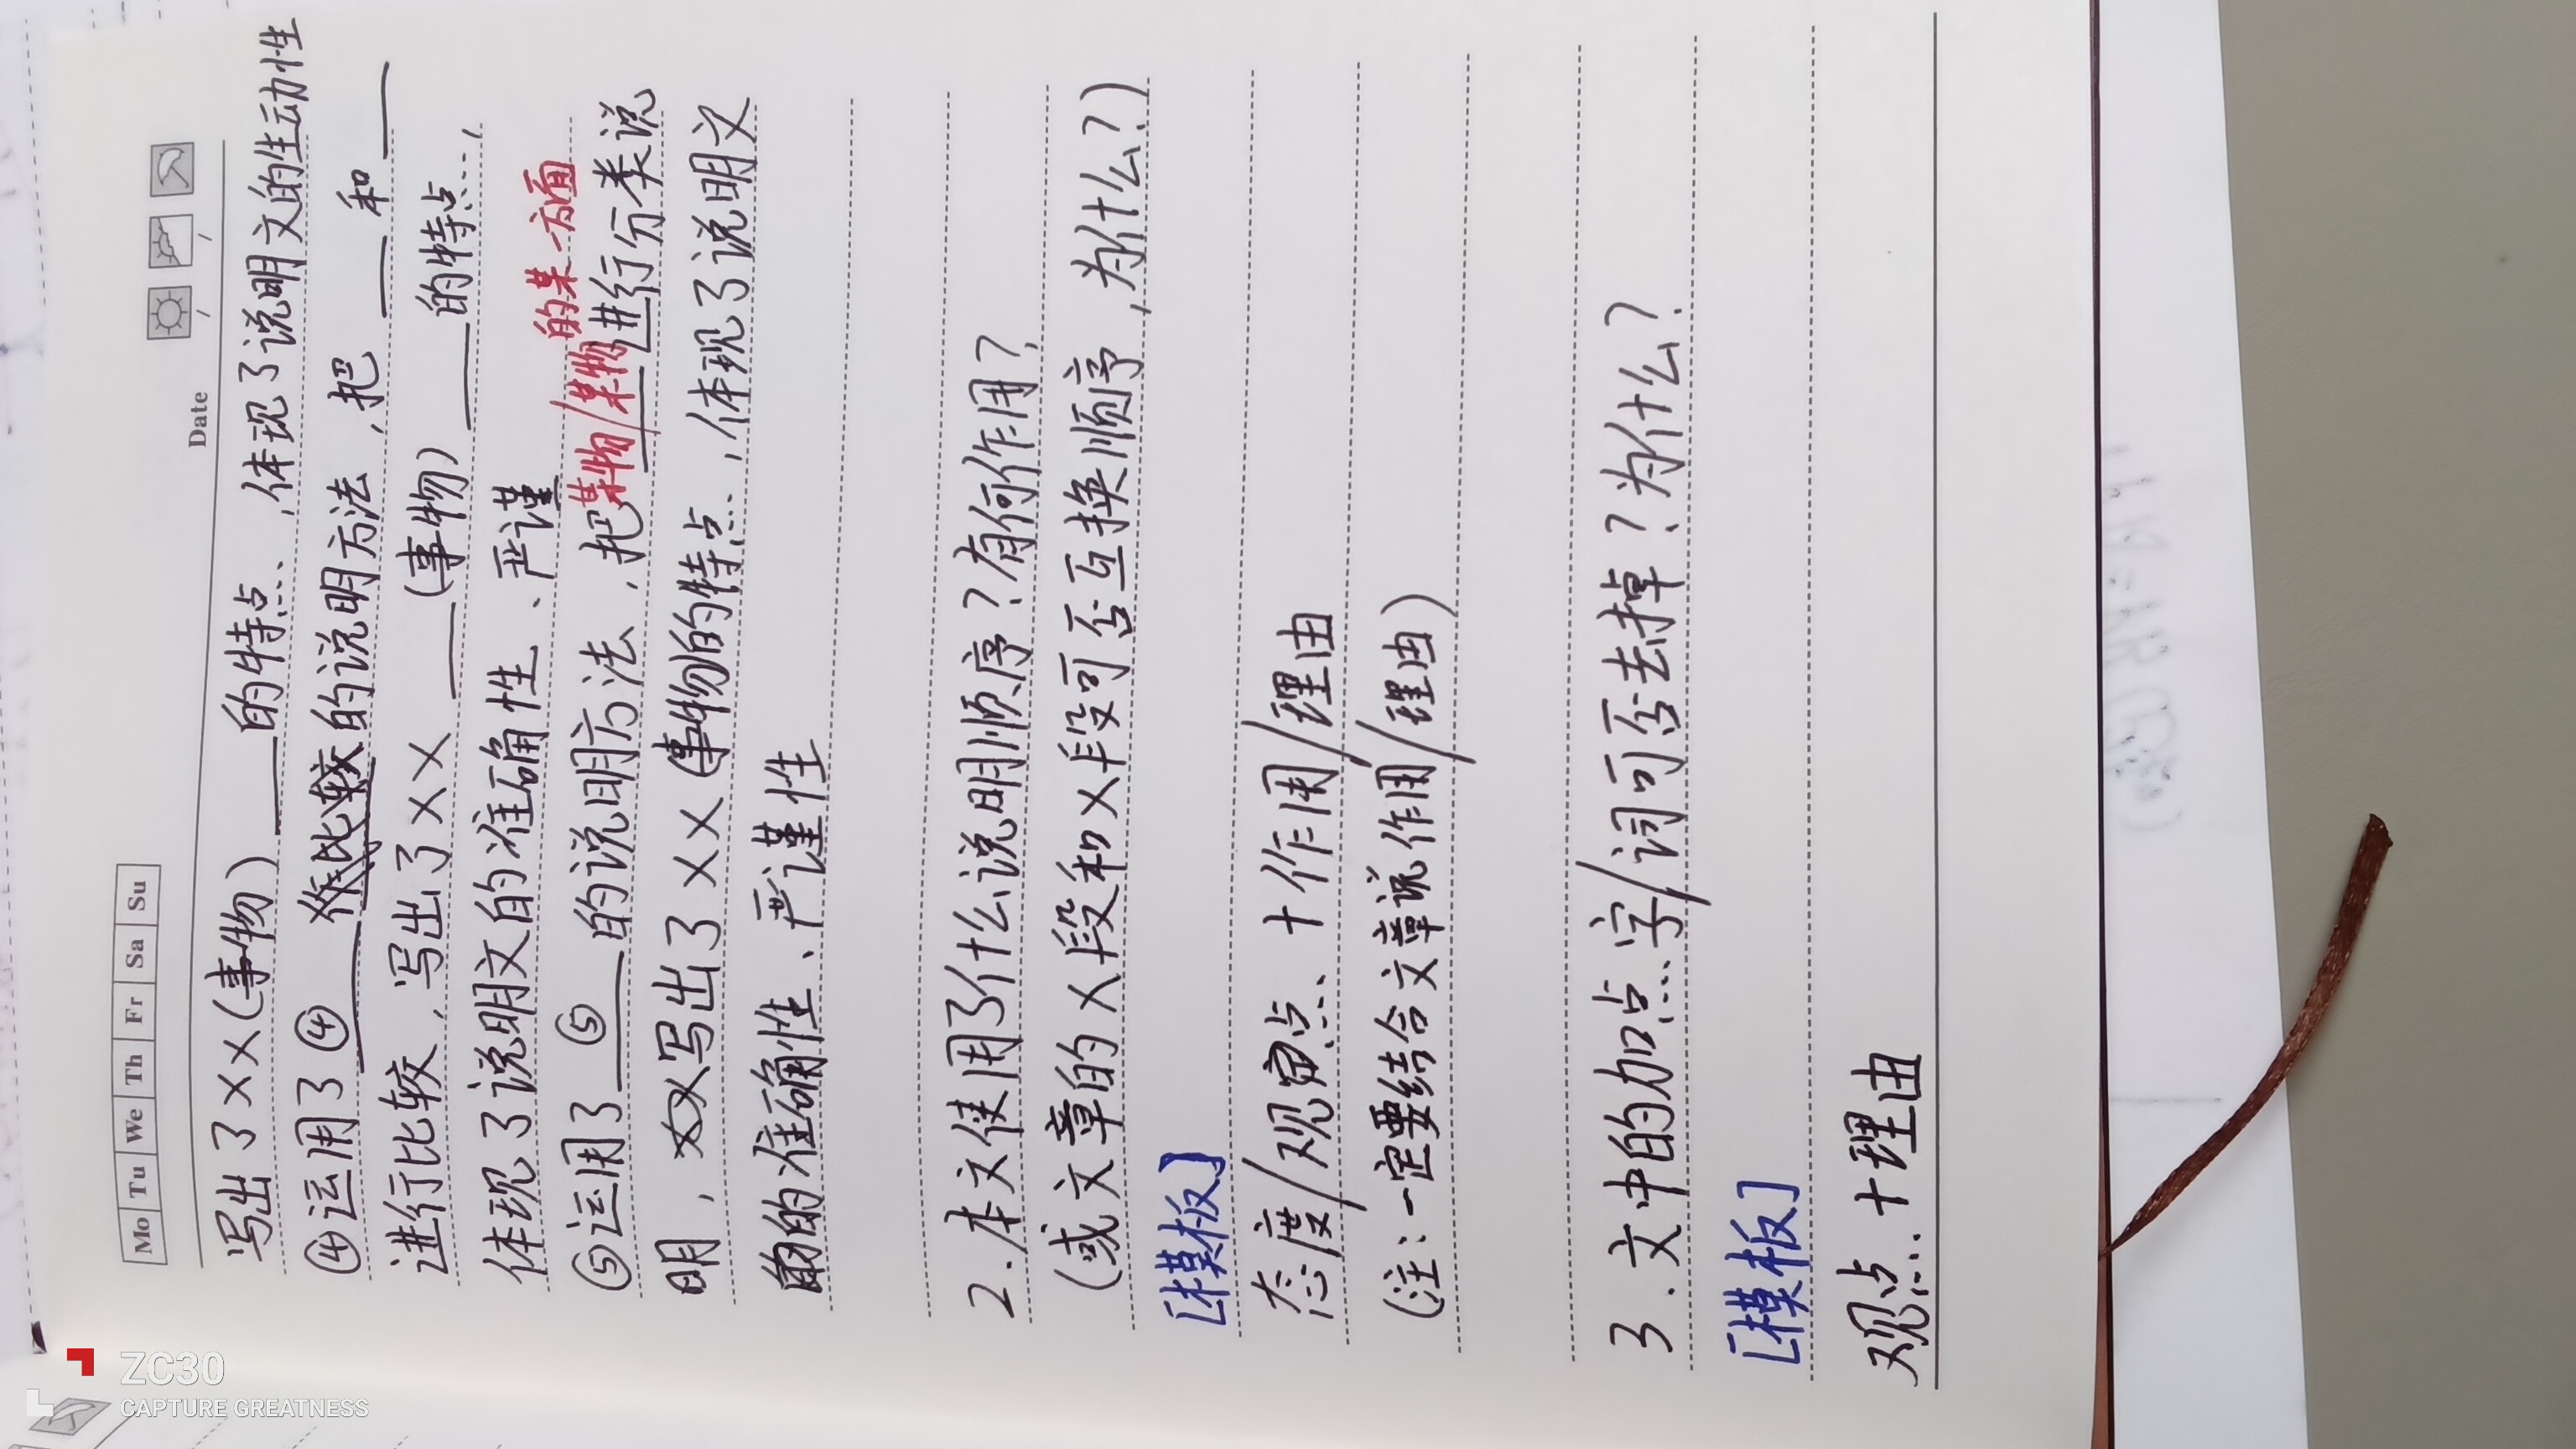 Mo Tu We Th Fr Sa Su
Date / /
写出了××(事物)____的特点,体现了说明文的生动性
④运用了④____作比较的说明方法,把____和____
进行比较,写出了××____(事物)____的特点,
体现了说明文的准确性、严谨
的某一方面
⑤运用了⑤____的说明方法,把某物/某物进行分类说
明,写出了××(事物的特点,体现了说明文
的准确性、严谨性
2.本文使用了什么说明顺序?有何作用?
(或文章的×段和×段可否互换顺序,为什么?)
[模板]
态度/观点+作用/理由
(注:一定要结合文章说作用/理由)
3.文中的加点字/词可否去掉?为什么?
[模板]
观点+理由
ZC30
CAPTURE GREATNESS